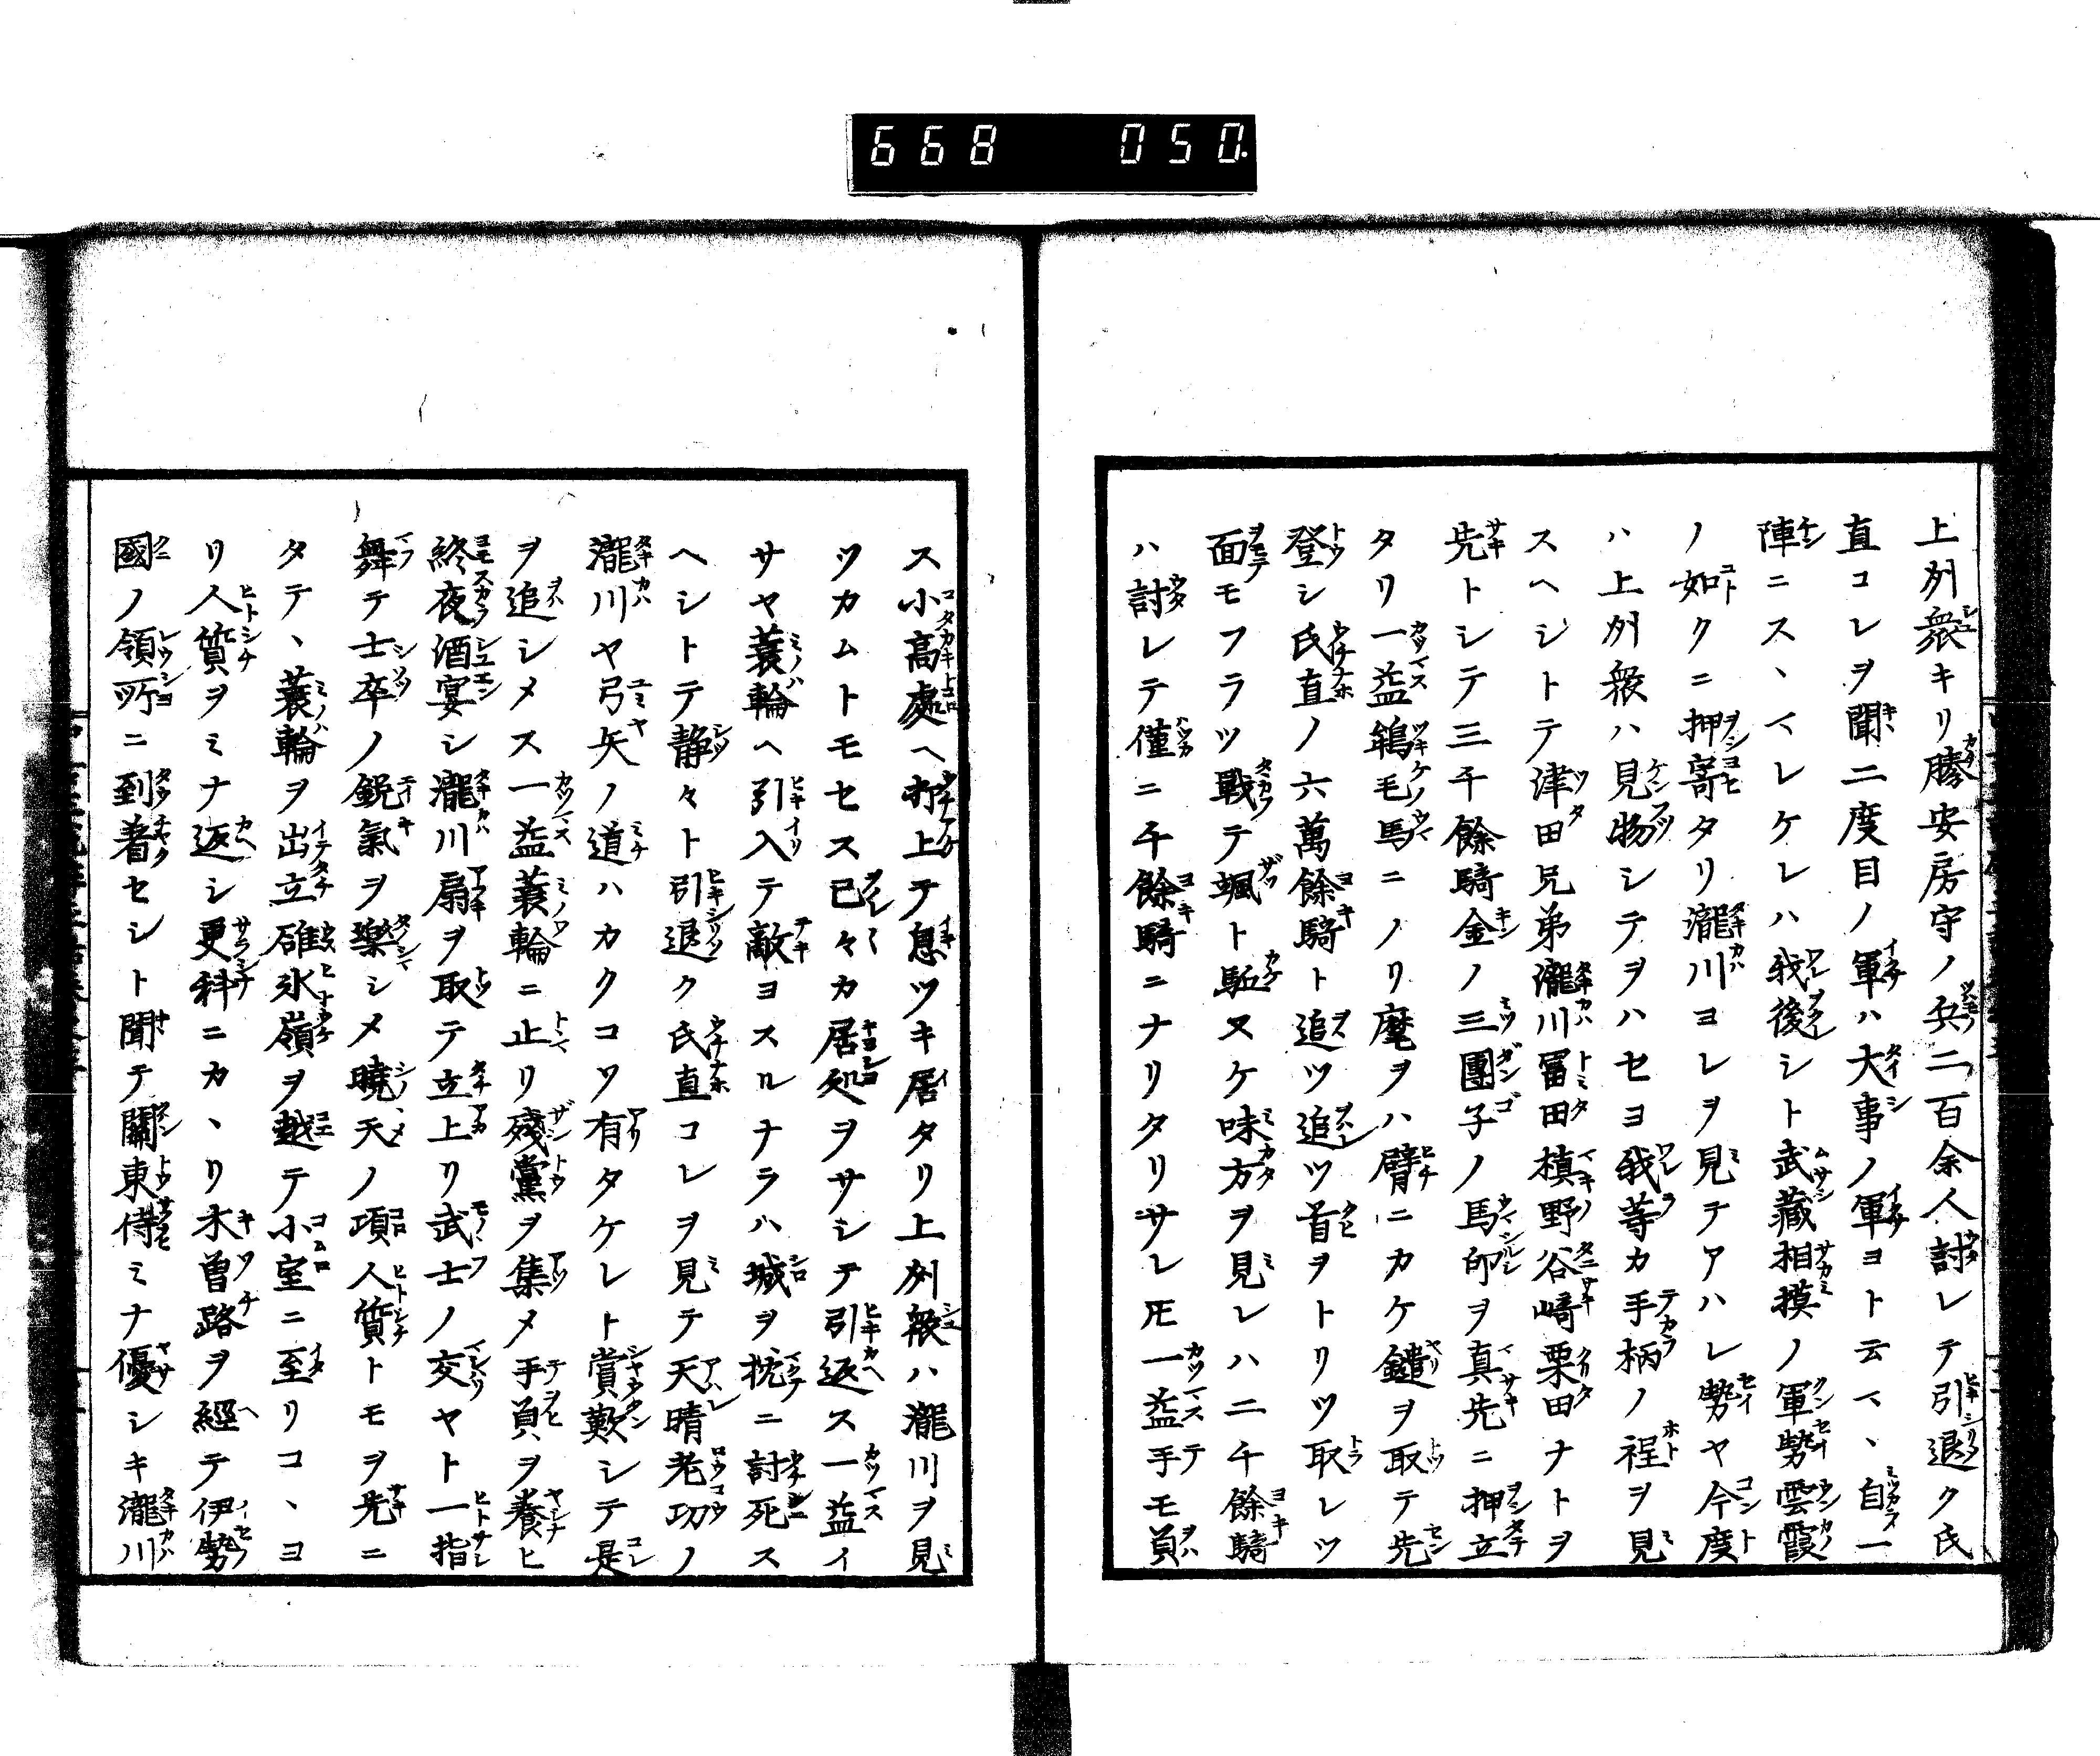 668 050.
上州衆キリ勝安房守ノ兵二百余人討レテ引退ク氏
直コレヲ聞二度目ノ軍ハ大事ノ軍ヨト云マヽ自一
陣ニスヽマレケレハ我後シト武藏相摸ノ軍勢雲霞
ノ如クニ押寄タリ瀧川ヨレヲ見テアハレ勢ヤ今度
ハ上州衆ハ見物シテヲハセヨ我等カ手柄ノ程ヲ見
スヘシトテ津田兄弟瀧川冨田槙野谷崎栗田ナトヲ
先トシテ三千餘騎金ノ三團子ノ馬印ヲ真先ニ押立
タリ一益鴾毛馬ニノリ麾ヲハ臂ニカケ鑓ヲ取テ先
登シ氏直ノ六萬餘騎ト追ツ追ツ首ヲトリツ取レツ
面モフラツ戰テ颯ト駈ヌケ味方ヲ見レハ二千餘騎
ハ討レテ僅ニ千餘騎ニナリタリサレ𪜈一益手モ負
ス小高處ヘ打上テ息ツキ居タリ上州衆ハ瀧川ヲ見
ツカムトモセス已々カ居処ヲサシテ引返ス一益イ
サヤ蓑輪ヘ引入テ敵ヨスルナラハ城ヲ枕ニ討死ス
ヘシトテ静々ト引退ク氏直コレヲ見テ天晴老功ノ
瀧川ヤ弓矢ノ道ハカクコソ有タケレト賞歎シテ是
ヲ追シメス一益蓑輪ニ止リ殘黨ヲ集メ手負ヲ養ヒ
終夜酒宴シ瀧川扇ヲ取テ立上リ武士ノ交ヤト一指
舞テ士卒ノ鋭氣ヲ樂シメ曉天ノ項人質トモヲ先ニ
タテヽ蓑輪ヲ出立碓氷嶺ヲ越テ小室ニ至リコヽヨ
リ人質ヲミナ返シ更科ニカヽリ木曽路ヲ經テ伊勢
國ノ領所ニ到着セシト聞テ關東侍ミナ優シキ瀧川